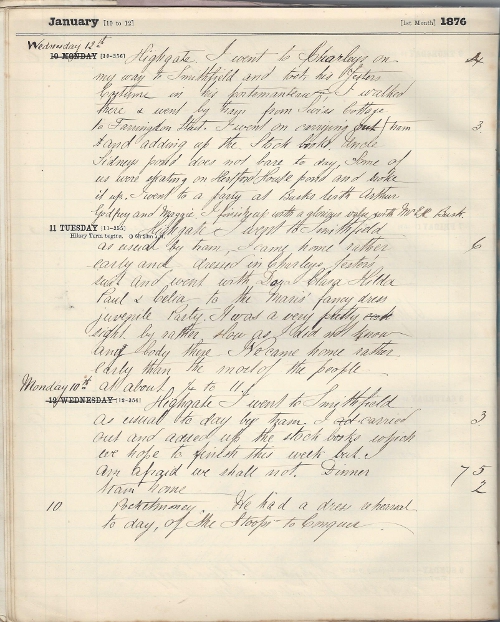 January [10 to 12] [1st Month] 1876
Wednesday 12th
10 MONDAY [10-356]
Highgate I went to Charleys on
my way to Smithfield and took his Jesters
Costume in his portemanteau. I walked
there & went by train from Swiss Cottage
to Farringdon Street. I went on carrying out train 3
and adding up the Stock books. Uncle
Sidneys pond does not bare to day, Some of
us were skating on Hertford House pond and broke
it up. I went to a party at Busks with Arthur
Godfrey and Maggie. I finished up with a glorious valse with Mrs Busk.
11 TUESDAY [11-355]
Hilary Term begins.
Highgate I went to Smithfield
as usual by tram, I came home rather 6
early and dressed in Charleys Jestors
suit and went with Clara Hilda
Paul & to the fancy dress
juvenile Party. It was a very pretty
sight by rather slow as I did not know
any body there. We came home rather
early than the most of the people
at about 1/4 to 11.
Monday 10th
12 WEDNESDAY [12-354]
Highgate I went to Smithfield
as usual to day by tram. I carried 3
out and added up the stock books which
we hope to finish this week but I
am afraid we shall not. Dinner 7 5
tram home 2
10 Pocketmoney. We had a dress rehersal
to day, of She Stoops to Conquer